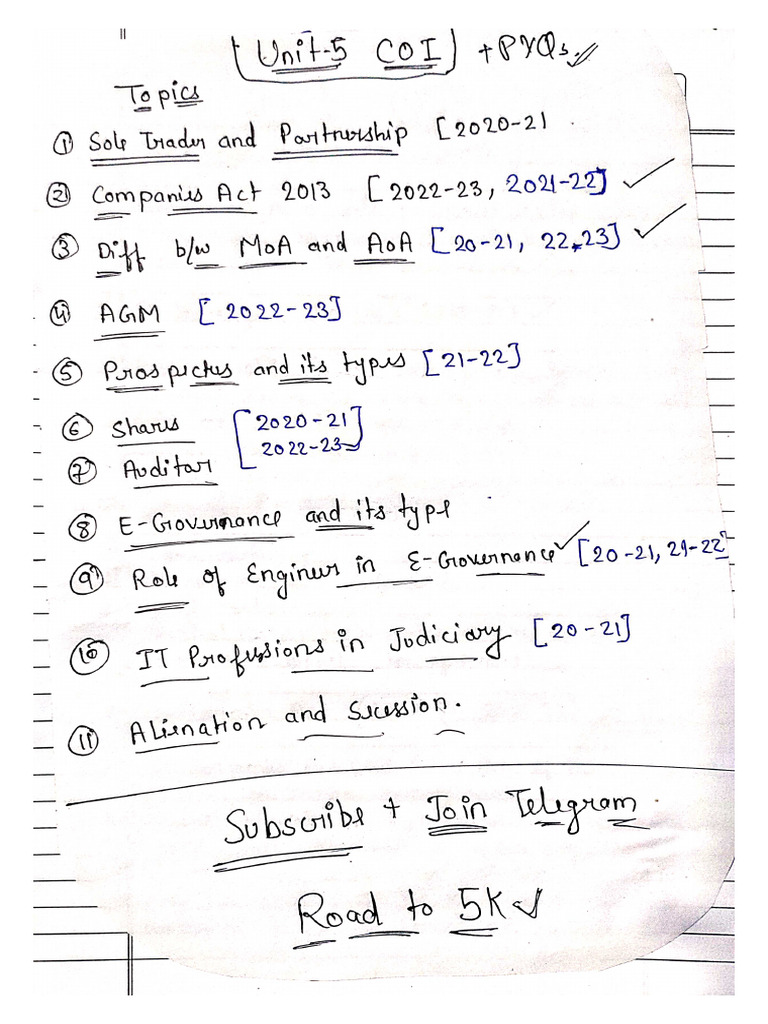 Unit-5 COI + PYQs
Topics
① Sole Trader and Partnership [2020-21
② Companies Act 2013 [2022-23, 2021-22]
③ Diff b/w MoA and AoA [20-21, 22,23]
④ AGM [2022-23]
⑤ Prospectus and its types [21-22]
⑥ Shares [2020-21]
⑦ Auditor 2022-23
⑧ E-Governance and its type
⑨ Role of Engineer in E-Governance [20-21, 21-22]
⑩ IT Professions in Judiciary [20-21]
⑪ Alienation and Secession.
Subscribe + Join Telegram
Road to 5K